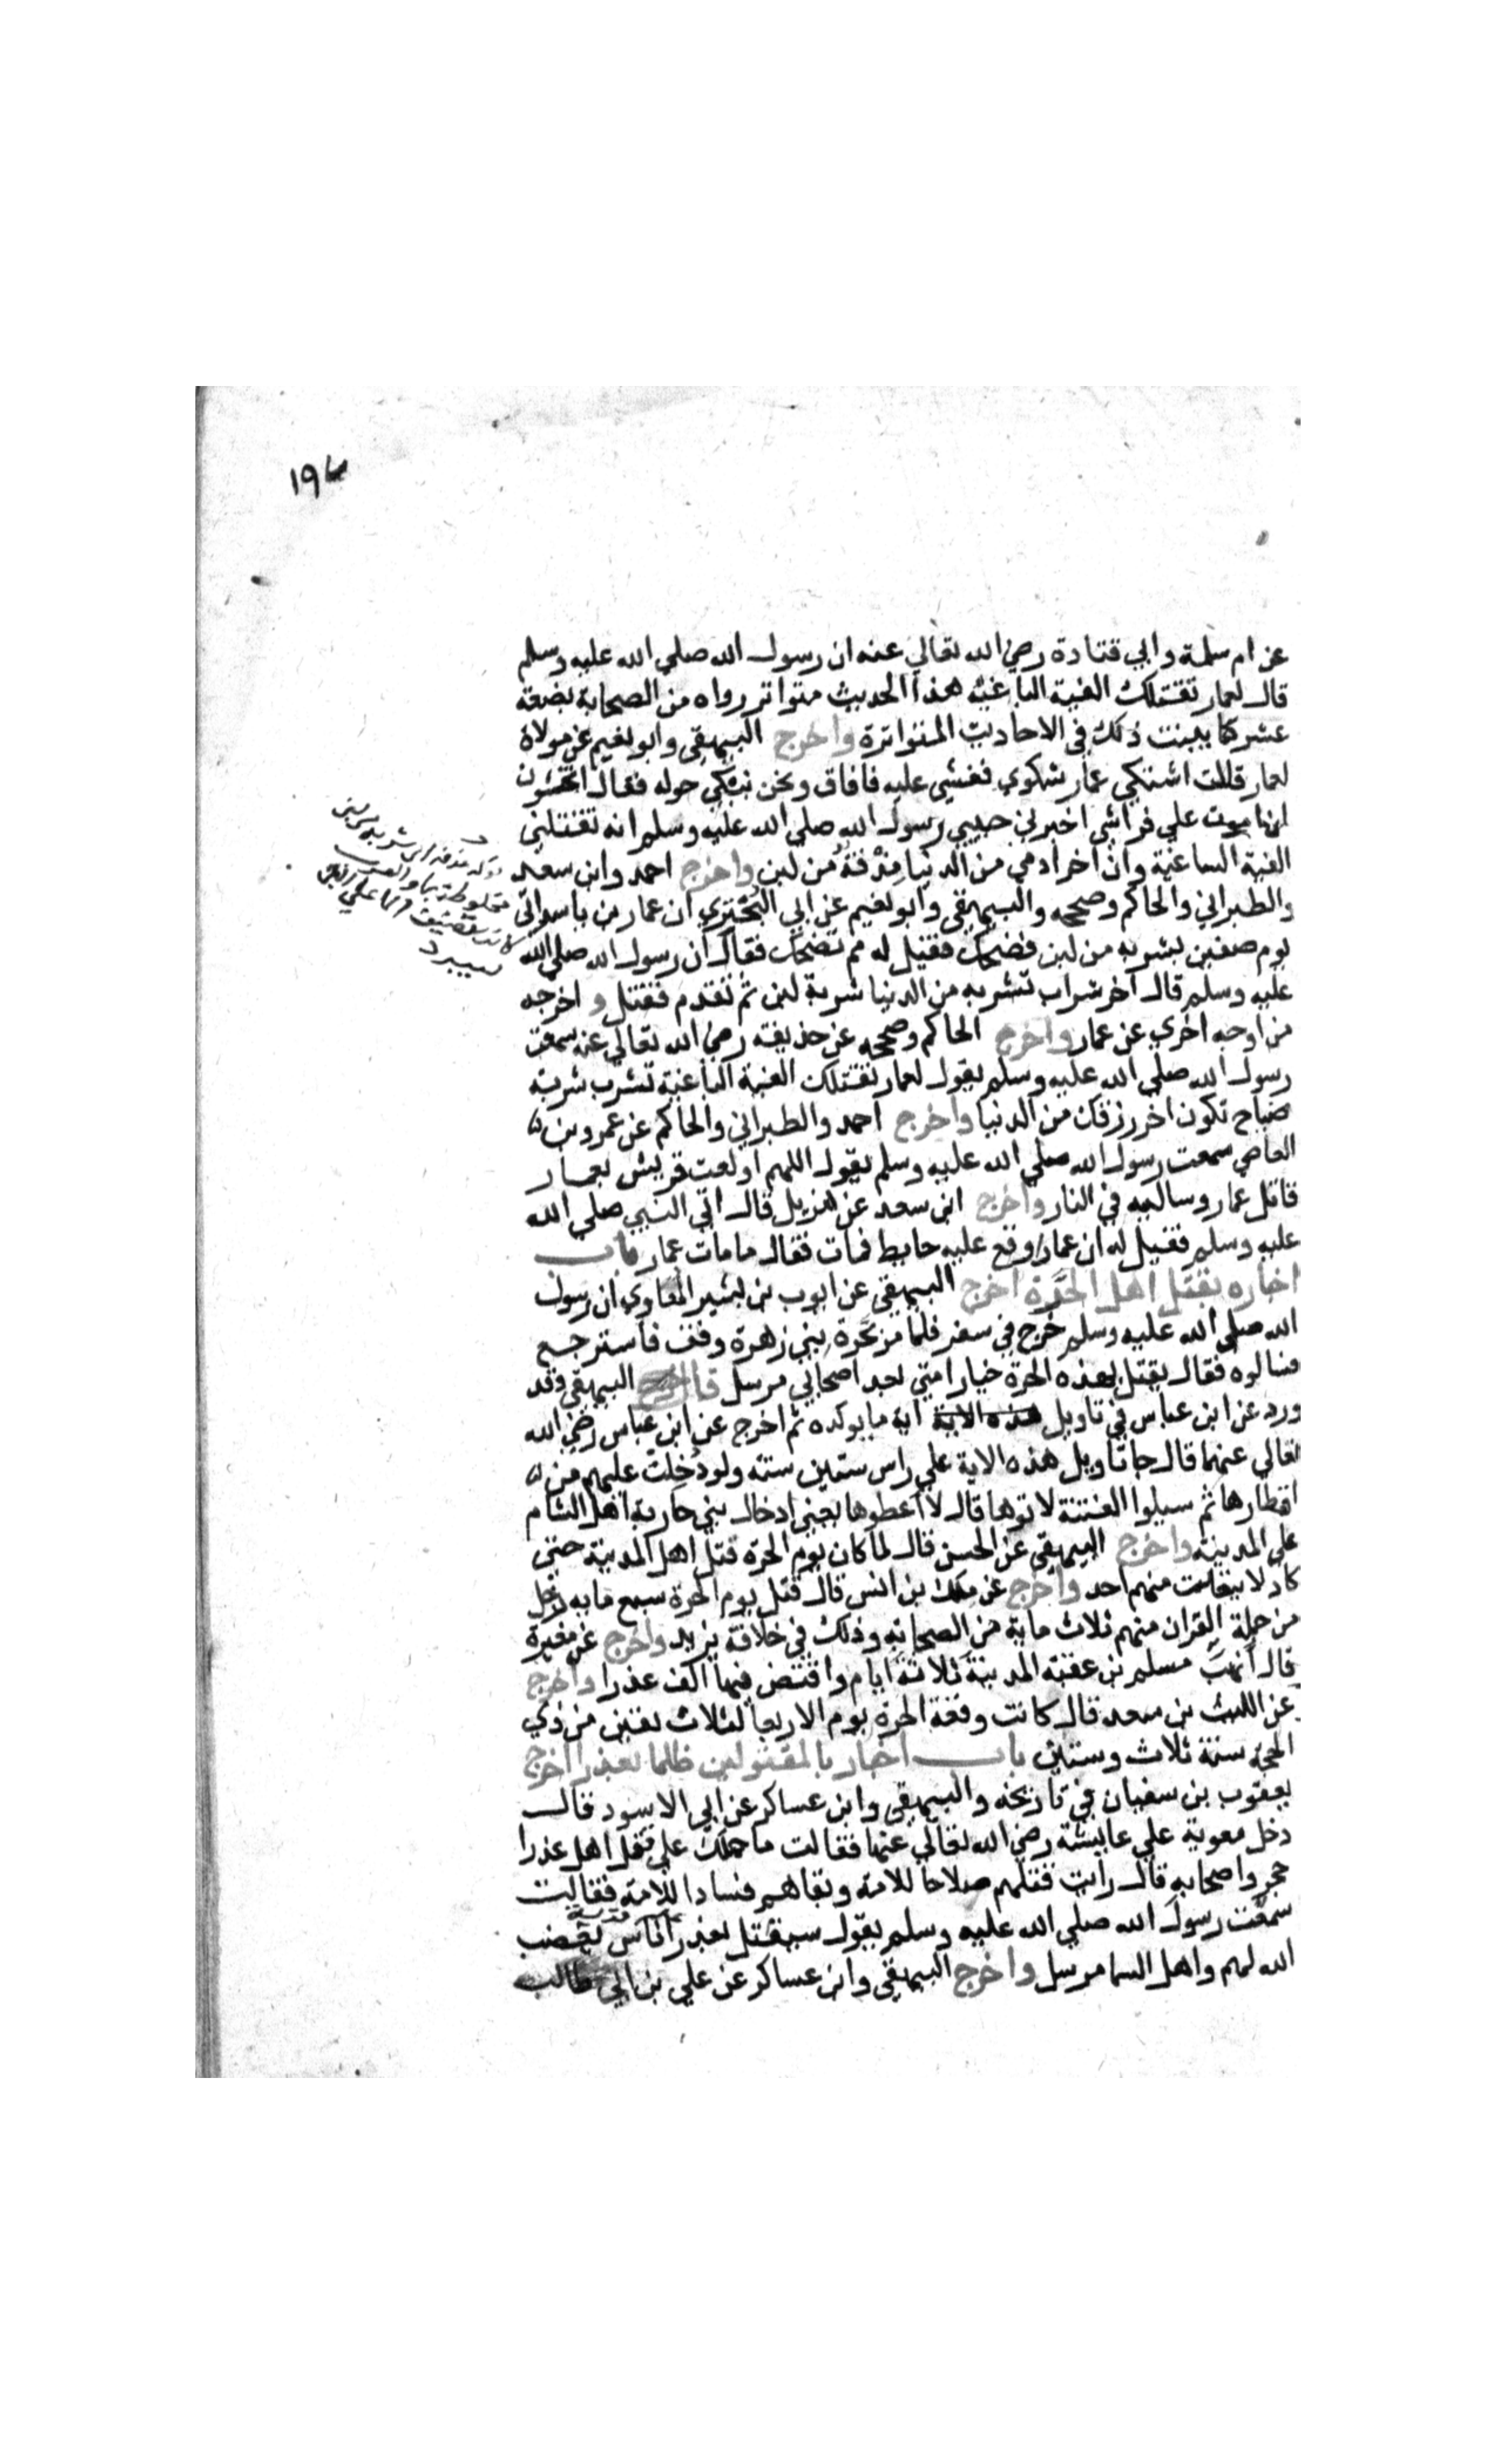 ١٩٧
عن ام سلمة وابي قتادة رضي الله تعالي عنه ان رسول الله صلي الله عليه وسلم
قال لعمار تقتلك الفية الباغية هذا الحديث متواتر رواه من الصحابة بضعة
عشر كما بينت ذلك في الاحاديث المتواترة واخرج البيهقي وابو نعيم عن مولاة
لعمار قالت اشتكي عمار شكوي فغشي عليه فافاق ونحن نبكي حوله فقال اتخشون
اموت علي فراشي اخبرني حبيبي رسول الله صلي الله عليه وسلم انه تقتلني
الفية الباغية وان اخر ادمي من الدنيا مذقة من لبن واخرج احمد وابن سعد
والطبراني والحاكم وصححه والبيهقي وابو نعيم عن ابي البختري ان عمار بن ياسر اتي
يوم صفين بشربة من لبن فضحك فقيل له مم تضحك فقال ان رسول الله صلي الله
عليه وسلم قال اخر شراب تشربه من الدنيا شربة لبن ثم تقدم فقتل واخرجه
من اوجه اخري عن عمار واخرج الحاكم وصححه عن حذيفة رضي الله تعالي عنه سمعت
رسول الله صلي الله عليه وسلم يقول لعمار تقتلك الفية الباغية تشرب شربة
ضياح تكون اخر رزقك من الدنيا واخرج احمد والطبراني والحاكم عن عمرو بن
العاصي سمعت رسول الله صلي الله عليه وسلم يقول اللهم اولعت قريش بعمار
قاتل عمار وسالبه في النار واخرج ابن سعد عن هزيل قال اتي النبي صلي الله
عليه وسلم فقيل له ان عمارا وقع عليه حايط فمات فقال ما مات عمار باب
اخباره بقتل اهل الحرة اخرج البيهقي عن ايوب بن بشير المعاوي ان رسول
الله صلي الله عليه وسلم خرج في سفر فلما مر بحرة بني زهرة وقف فاسترجع
فسالوه فقال يقتل بهذه الحرة خيار امتي بعد اصحابي مرسل قال البيهقي وقد
ورد عن ابن عباس في تاويل هذه الاية اية ما يوكده ثم اخرج عن ابن عباس رضي الله
تعالي عنهما قال جا تاويل هذه الاية علي راس ستين سنة ولو دخلت عليهم من
اقطارها ثم سيلوا الفتنة لاتوها قال لاعطوها يعني ادخال بني حارثة اهل الشام
علي المدينة واخرج البيهقي عن الحسن قال لما كان يوم الحرة قتل اهل المدينة حتي
كاد لا ينفلت منهم احد واخرج عن ملك بن انس قال قتل يوم الحرة سبع ماية رجل
من حملة القران منهم ثلاث ماية من الصحابة وذلك في خلافة يزيد واخرج عن مغيرة
قال انهب مسلم بن عقبة المدينة ثلاثة ايام وافتض فيها الف عذرا واخرج
عن الليث بن سعد قال كانت وقعة الحرة يوم الاربعا لثلاث بقين من ذي
الحجة سنة ثلاث وستين باب اخبار بالمقتولين ظلما بعذرا اخرج
يعقوب بن سفيان في تاريخه والبيهقي وابن عساكر عن ابي الاسود قال
دخل معوية علي عايشة رضي الله تعالي عنها فقالت ما حملك علي قتل اهل عذرا
حجر واصحابه قال رايت قتلهم صلاحا للامة وبقاهم فسادا للامة فقالت
سمعت رسول الله صلي الله عليه وسلم يقول سيقتل بعذرا اناس يغضب
الله لهم واهل السما مرسل واخرج البيهقي وابن عساكر عن علي بن ابي طالب